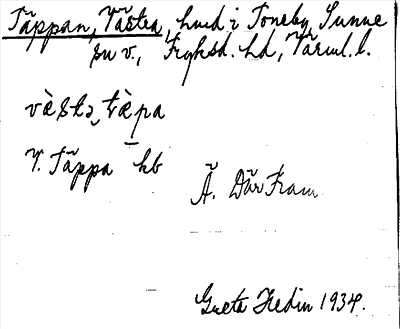 Täppan, Västra, hmd i Toneby, Sunne
sn v., Fryksd. hd, Värml. l.
væ̀stə tæ̀pa
V. Täppa hb
Ä. Där Fram
Greta Hedin 1934.